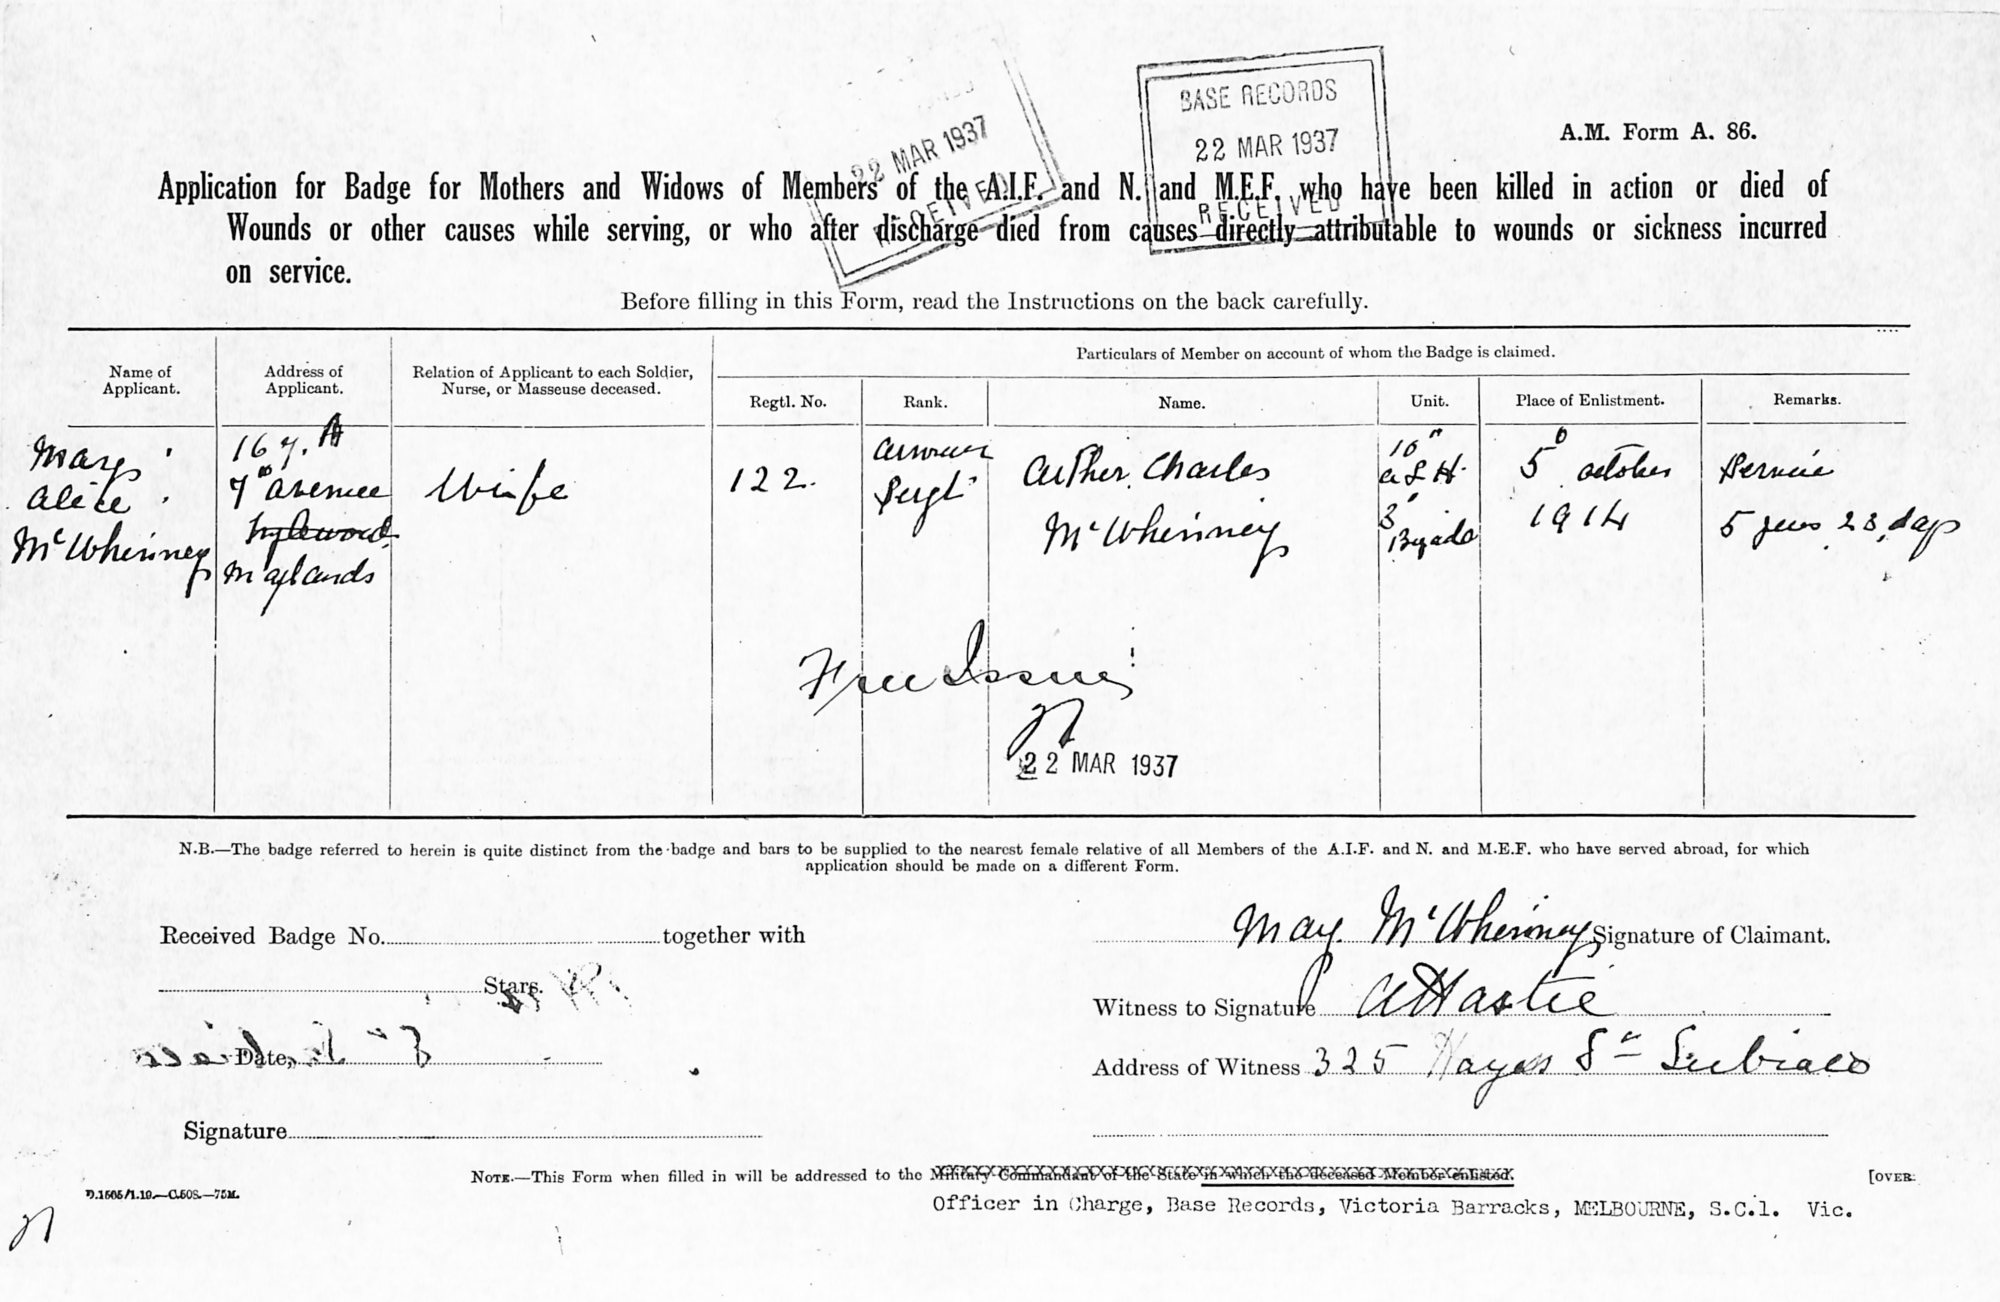 BASE RECORDS
22 MAR 1937
RECEIVED
22 MAR 1937
RECEIVED
A.M. Form A. 86.
Application for Badge for Mothers and Widows of Members of the A.I.F. and N. and M.E.F. who have been killed in action or died of
Wounds or other causes while serving, or who after discharge died from causes directly attributable to wounds or sickness incurred
on service.
Before filling in this Form, read the Instructions on the back carefully.
Name of Applicant.
Address of Applicant.
Relation of Applicant to each Soldier, Nurse, or Masseuse deceased.
Particulars of Member on account of whom the Badge is claimed.
Regtl. No.
Rank.
Name.
Unit.
Place of Enlistment.
Remarks.
Mary
Alice
McWhinney
167.A
7th Avenue
Inglewood
Maylands
Wife
122.
Armourer
Sergt
Arther Charles
McWhinney
10th
A L H.
3rd
Brigade
5th October
1914
Service
5 years 23 days
Free Issue
22 MAR 1937
N.B.—The badge referred to herein is quite distinct from the badge and bars to be supplied to the nearest female relative of all Members of the A.I.F. and N. and M.E.F. who have served abroad, for which
application should be made on a different Form.
Received Badge No. together with
Stars.
Date,
Signature
May McWhinney Signature of Claimant.
Witness to Signature A Hastie
Address of Witness 325 Hayes St Subiaco
NOTE.—This Form when filled in will be addressed to the Military Commandant of the State in which the deceased Member enlisted.
[OVER.
Officer in Charge, Base Records, Victoria Barracks, MELBOURNE, S.C.1. Vic.
D.1505/1.19.—C.508.—75M.